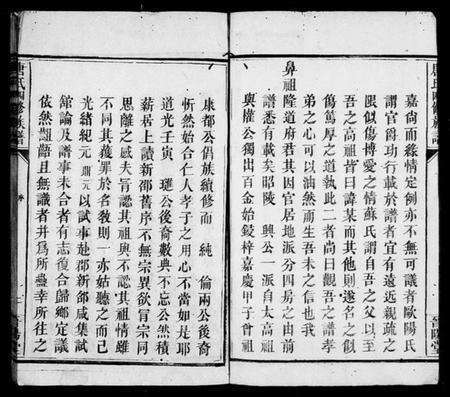 嘉尙而緣情定例亦不無可議者歐陽氏
謂官爵功行載於譜者宜有遠近親疏之
限似傷博愛之情蘇氏謂自吾之父以至
吾之高祖皆曰諱某而其他則遂名之似
傷篤厚之道執此二者尙曰觀吾之譜孝
弟之心可以油然而生吾未之信也我
鼻祖隆道府君其因官居地派分四房之由前
譜悉有載矣昭陵 興公一派自太高祖
與權公獨出百金始鋟梓嘉慶甲子曾祖
康都公倡族續修而 純 倫兩公後奇
忻然始合仁人孝子之用心不當如是耶
道光壬寅 璉公後奇數典不忘公然積
薪居上讀新邵舊序不無宗異欲冒宗同
恩離之感夫盲認其祖與不認其祖情雖
不同其獲罪於名教則一亦姑聽之而己
光緒紀元 鼎元以試事赴郡新邵咸集試
館論及譜事未合者有志復合歸鄉定議
依然齟齬且無識者并爲所蠱幸所往之
唐氏四修族譜
序
晉陽堂